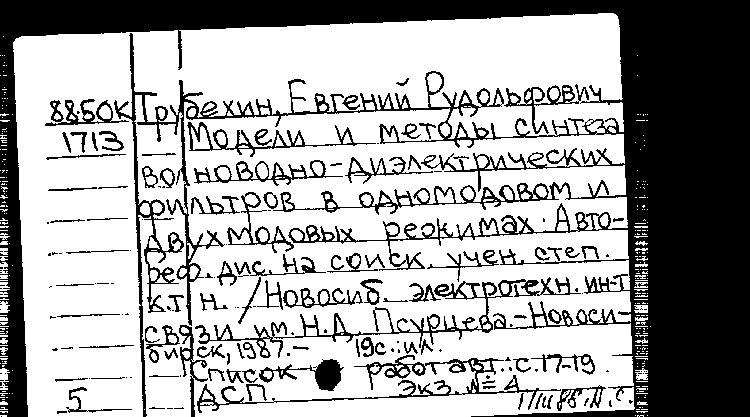 8850К Трубехин, Евгений Рудольфович
1713 Модели и методы синтеза
волноводно-диэлектрических
фильтров в одномодовом и
двухмодовых режимах: Авто-
реф. дис. на соиск. учен. степ.
к.т.н. / Новосиб. электротехн. ин-т
связи им. Н.Д. Псурцева.-Новоси-
бирск, 1987.- 19с.: ил.
Список работ авт.: с.17-19
5 ДСП. Экз. № 4